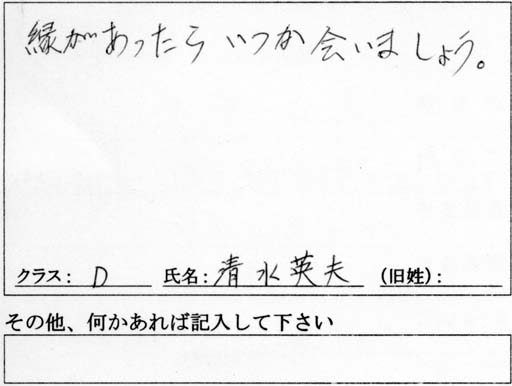 縁があったら いつか 会いましょう。
クラス: D 氏名: 清水英夫 (旧姓):
その他、何かあれば記入して下さい